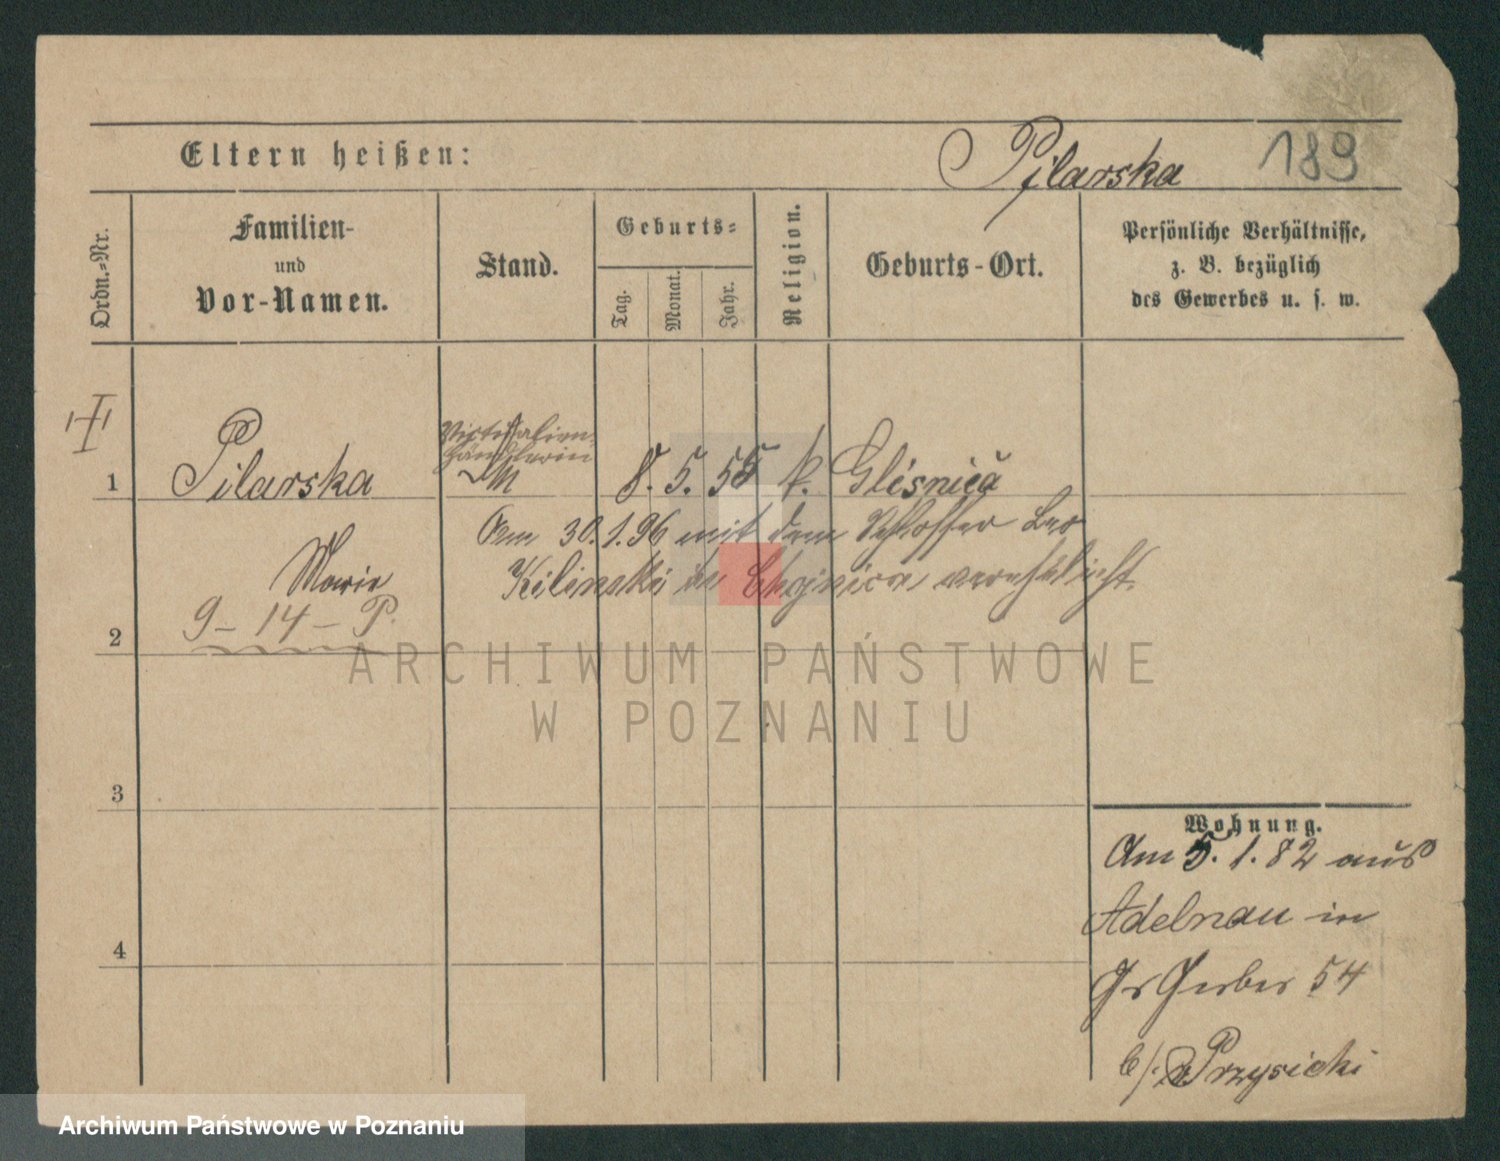 Eltern heißen: Pilarska 189
Ordn.=Nr.
Familien-
und
Vor-Namen.
Stand.
Geburts=
Tag.
Monat.
Jahr.
Religion.
Geburts-Ort.
Persönliche Verhältnisse,
z. B. bezüglich
des Gewerbes u. s. w.
Victualien-
händlerin
1 Pilarska 8. 5. 55 k. Glisnica
Am 30.1.96 mit dem Schlosser Leo
Kilinski in Chojnica verehelicht.
Marie
9 - 14 - P.
2
ARCHIWUM PAŃSTWOWE
W POZNANIU
3
Wohnung.
Am 5. 1. 82 aus
Adelnau in
4
Gr Gerber 54
b/. Przysicki
Archiwum Państwowe w Poznaniu